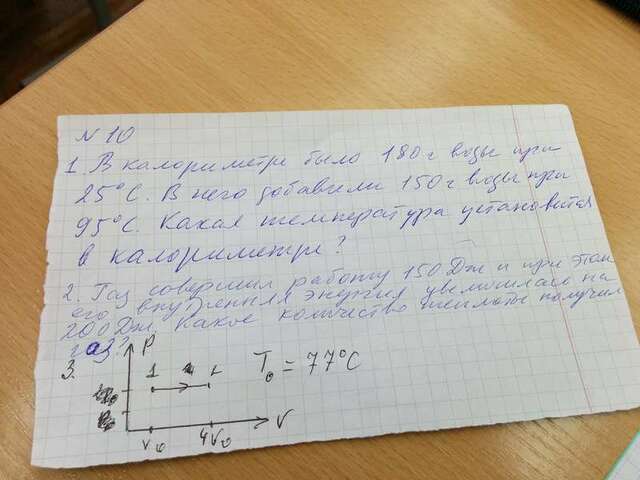 N 10
1. В калориметре было 180 г воды при
25°С. В него добавили 150 г воды при
95°С. Какая температура установится
в калориметре?
2. Газ совершил работу 150 Дж и при этом
его внутренняя энергия увеличилась на
200 Дж. Какое количество теплоты получил
газ?
3. P
1 2
T₀ = 77°C
V₀ 4V₀ V